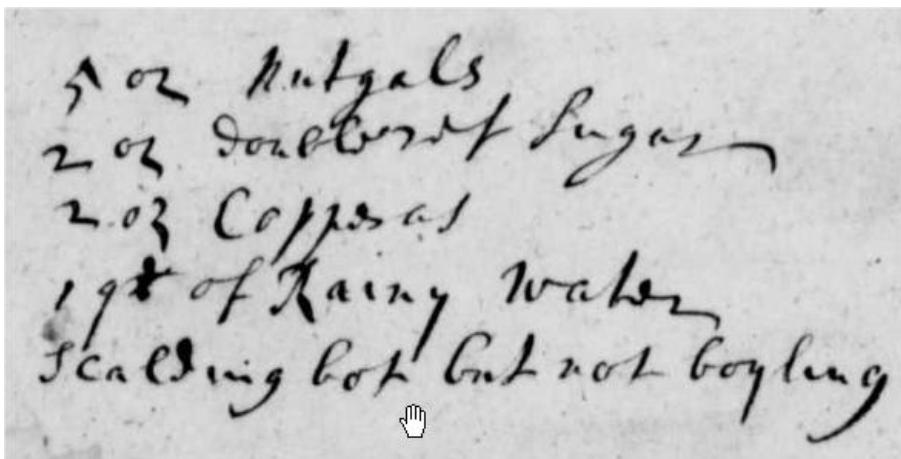 5 oz Nutgals
2 oz doubleref Sugar
2 oz Copperas
1 qt of Rainy water
scalding hot but not boyling